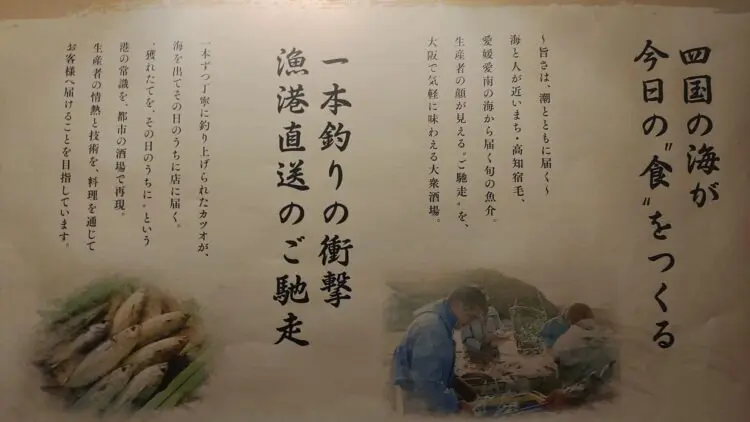 四国の海が
今日の“食”をつくる
〜旨さは、潮とともに届く〜
海と人が近いまち・高知宿毛、
愛媛愛南の海から届く旬の魚介。
生産者の顔が見える“ご馳走”を、
大阪で気軽に味わえる大衆酒場。
一本釣りの衝撃
漁港直送のご馳走
一本ずつ丁寧に釣り上げられたカツオが、
海を出てその日のうちに店に届く。
“獲れたてを、その日のうちに”という
港の常識を、都市の酒場で再現。
生産者の情熱と技術を、料理を通じて
お客様へ届けることを目指しています。